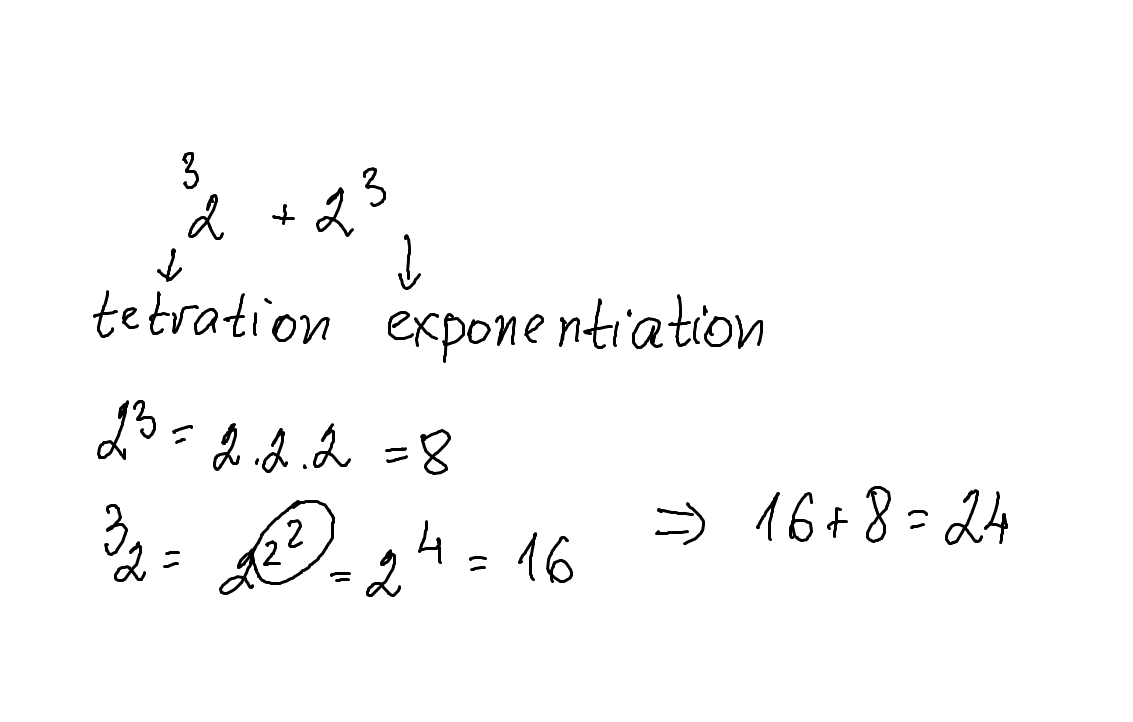 ³2 + 2³
↓ ↓
tetration exponentiation
2³ = 2.2.2 = 8
³2 = 2^2^2 = 2⁴ = 16 ⇒ 16+8=24